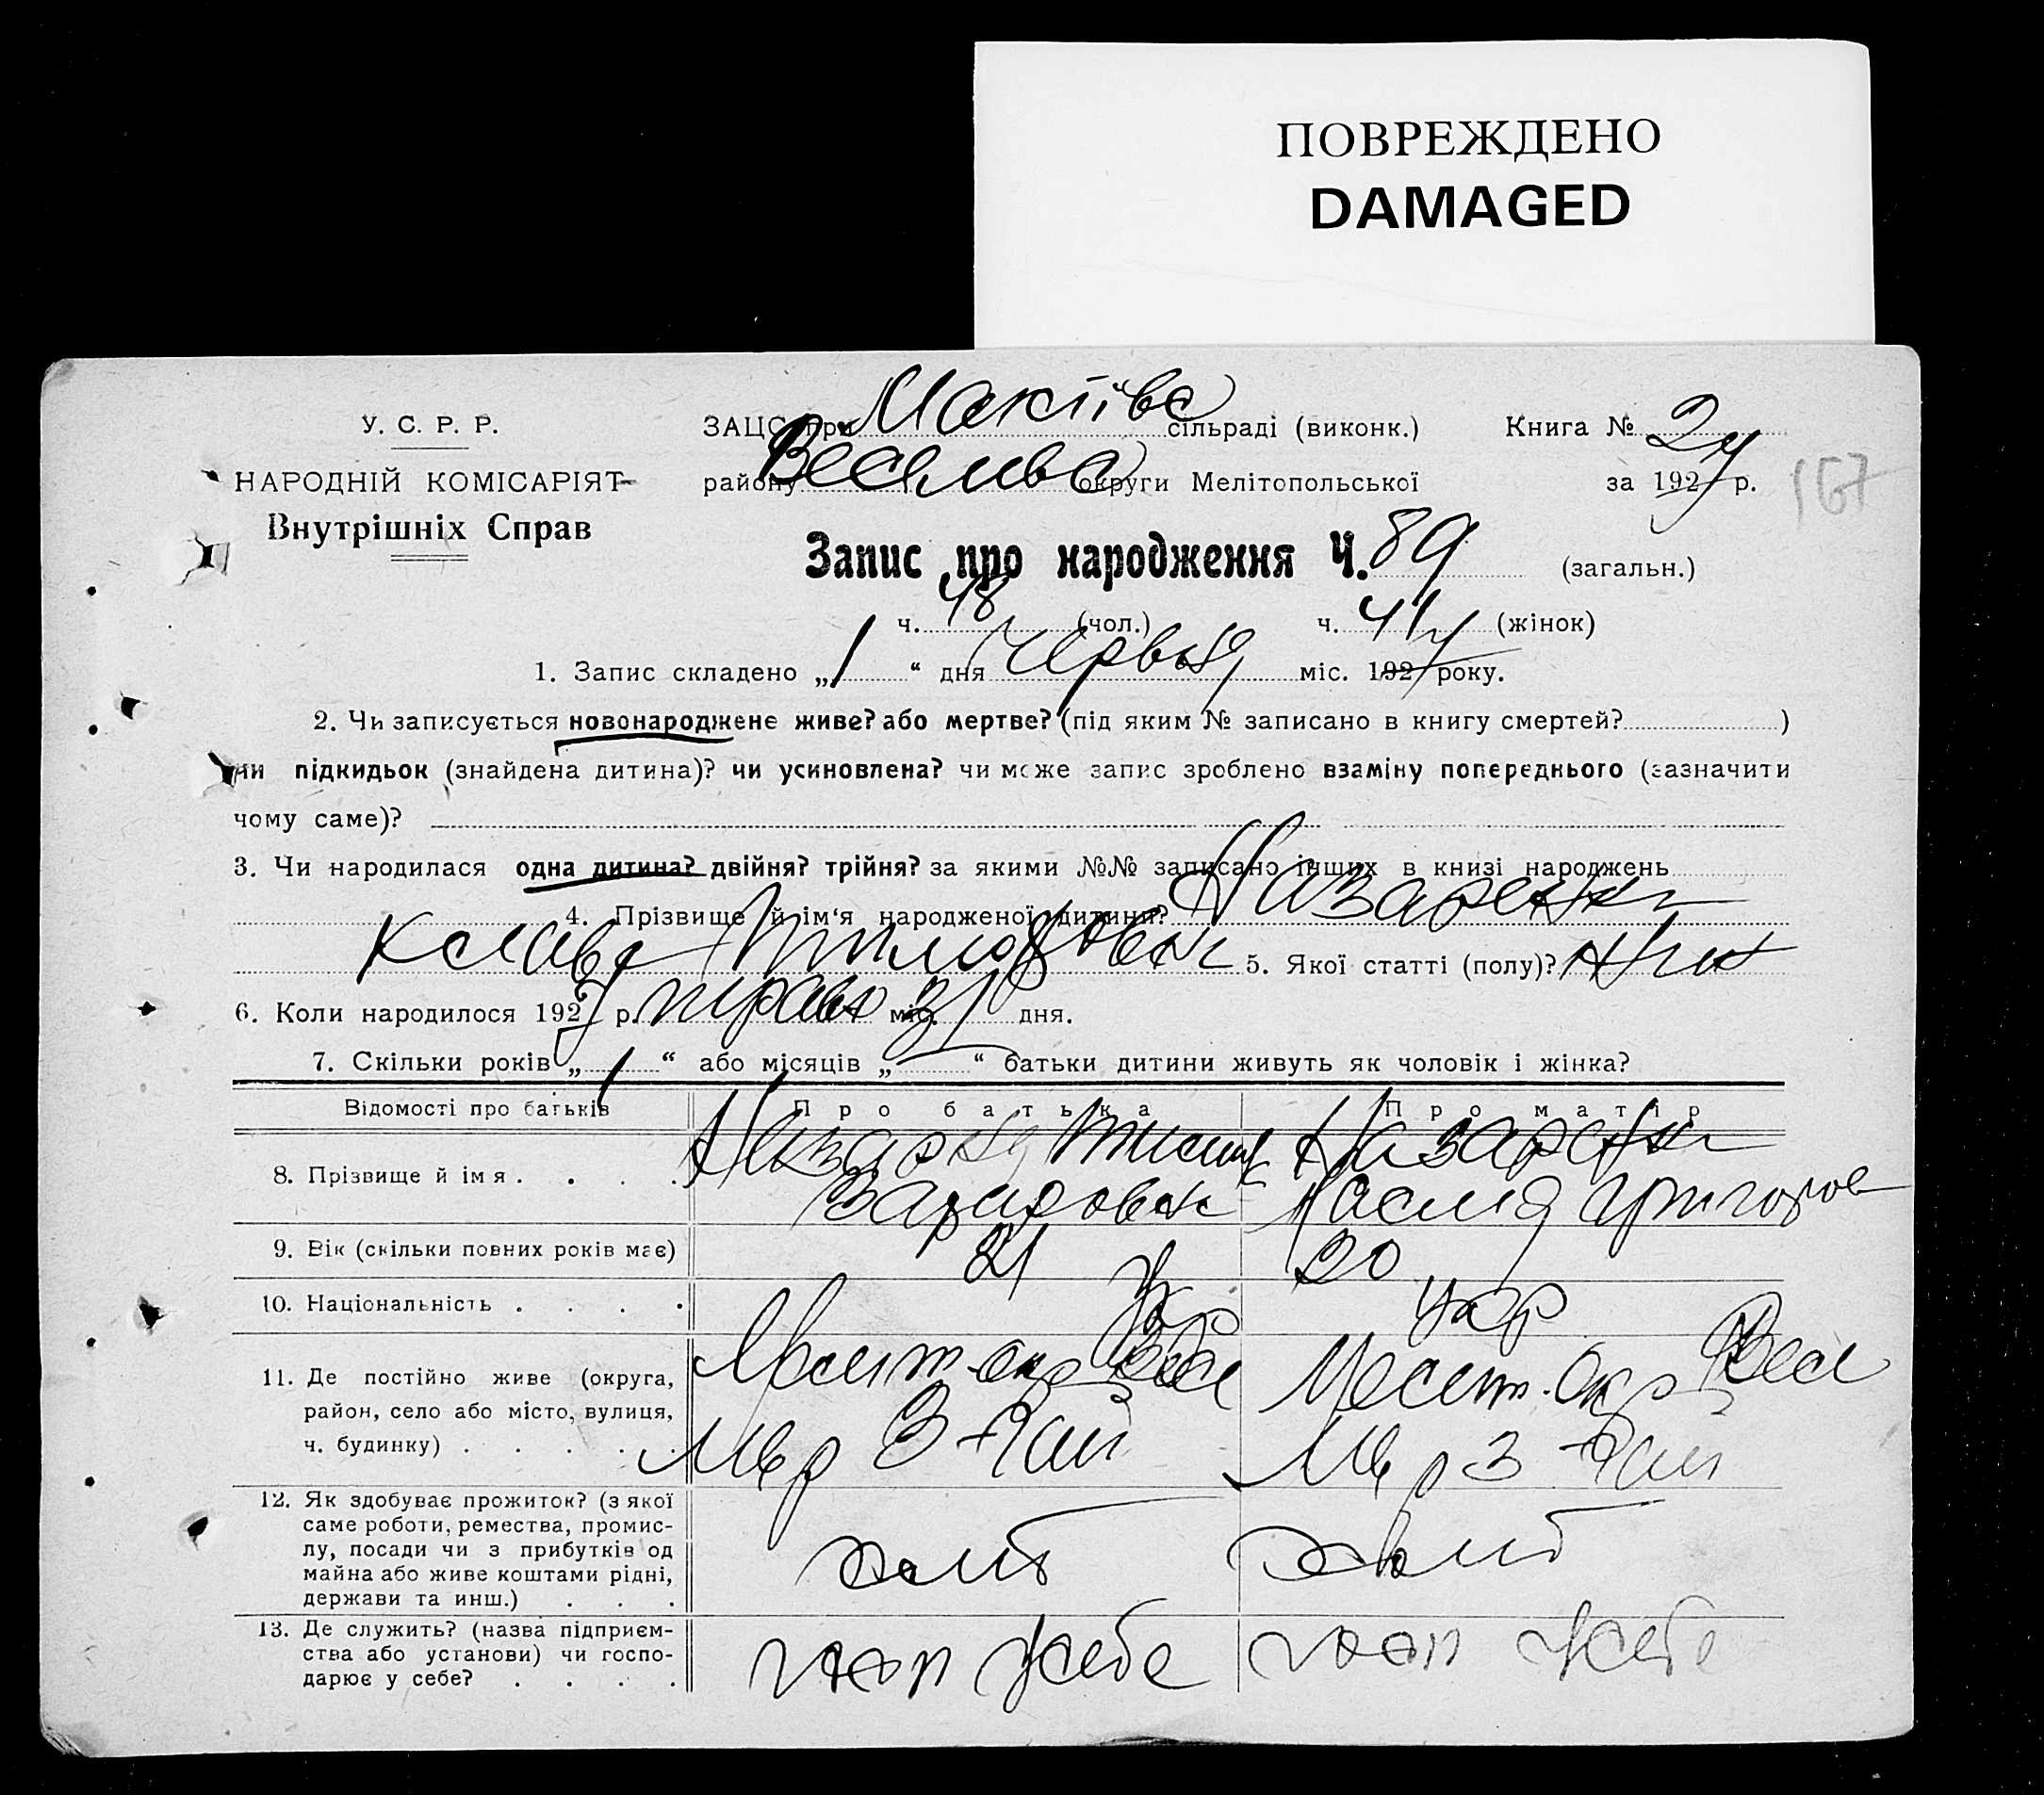 ПОВРЕЖДЕНО
DAMAGED
У. С. Р. Р.
НАРОДНІЙ КОМІСАРІЯТ
Внутрішніх Справ
ЗАЦС при сільраді (виконк.)
району округи Мелітопольської
Книга № 2
за 1927 р.
167
Запис про народження Ч. 89 (загальн.)
ч. 48 (чол.) ч. 41 (жінок)
1. Запис складено „1“ дня Червня міс. 1927 року.
2. Чи записується новонароджене живе? або мертве? (під яким № записано в книгу смертей? )
чи підкидьок (знайдена дитина)? чи усиновлена? чи може запис зроблено взаміну попереднього (зазначити
чому саме)?
3. Чи народилася одна дитина? двійня? трійня? за якими №№ записано інших в книзі народжень
4. Прізвище й ім‘я народженої дитини? Назаренко
5. Якої статті (полу)?
6. Коли народилося 1927 р. травн міс. 31 дня.
7. Скільки років „1“ або місяців „—“ батьки дитини живуть як чоловік і жінка?
Відомості про батьків Про батька Про матір
8. Прізвище й імя . . . . Назаренко
Григоров
9. Вік (скільки повних років має) 21 20
10. Національність . . . . Укр укр
11. Де постійно живе (округа, Мелит. окр Весе Мелит. Окр Весе
район, село або місто, вулиця,
ч. будинку) . . . . .
12. Як здобуває прожиток? (з якої
саме роботи, ремества, промис-
лу, посади чи з прибутків од
майна або живе коштами рідні,
держави та инш.) . . . хліб хліб
13. Де служить? (назва підприєм-
ства або установи) чи госпо-
дарює у себе? . . . . у себе у себе